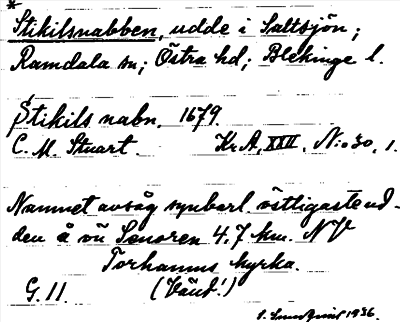 *
Stikilsnabben, udde i Saltsjön;
Ramdala sn; Östra hd; Blekinge l.
Stikils nabn. 1679.
C. M. Stuart. Kr.A, XXII, N:o 30, 1.
Namnet avsåg synbarl. östligaste ud-
den å ön Senoren 4.7 km. NV
Torhamns kyrka.
G. 11. (Vänd!)
1936.